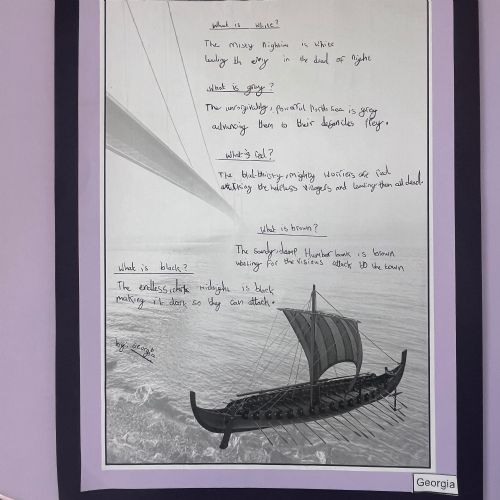 What is white?
The misty nightime is white
leading the envy in the dead of night
What is grey?
The unforgivably, powerful North sea is grey
advancing them to their defencles Prey.
What is red?
The blud-thirsty, mighty worriers are red
attacking the helpless villagers and leaving them all dead.
What is brown?
The sandy, damp Humber bank is brown
waiting for the visious attack to the town
What is black?
The endless, midnight is black
making it dark so they can attack.
by: Georgia
Georgia